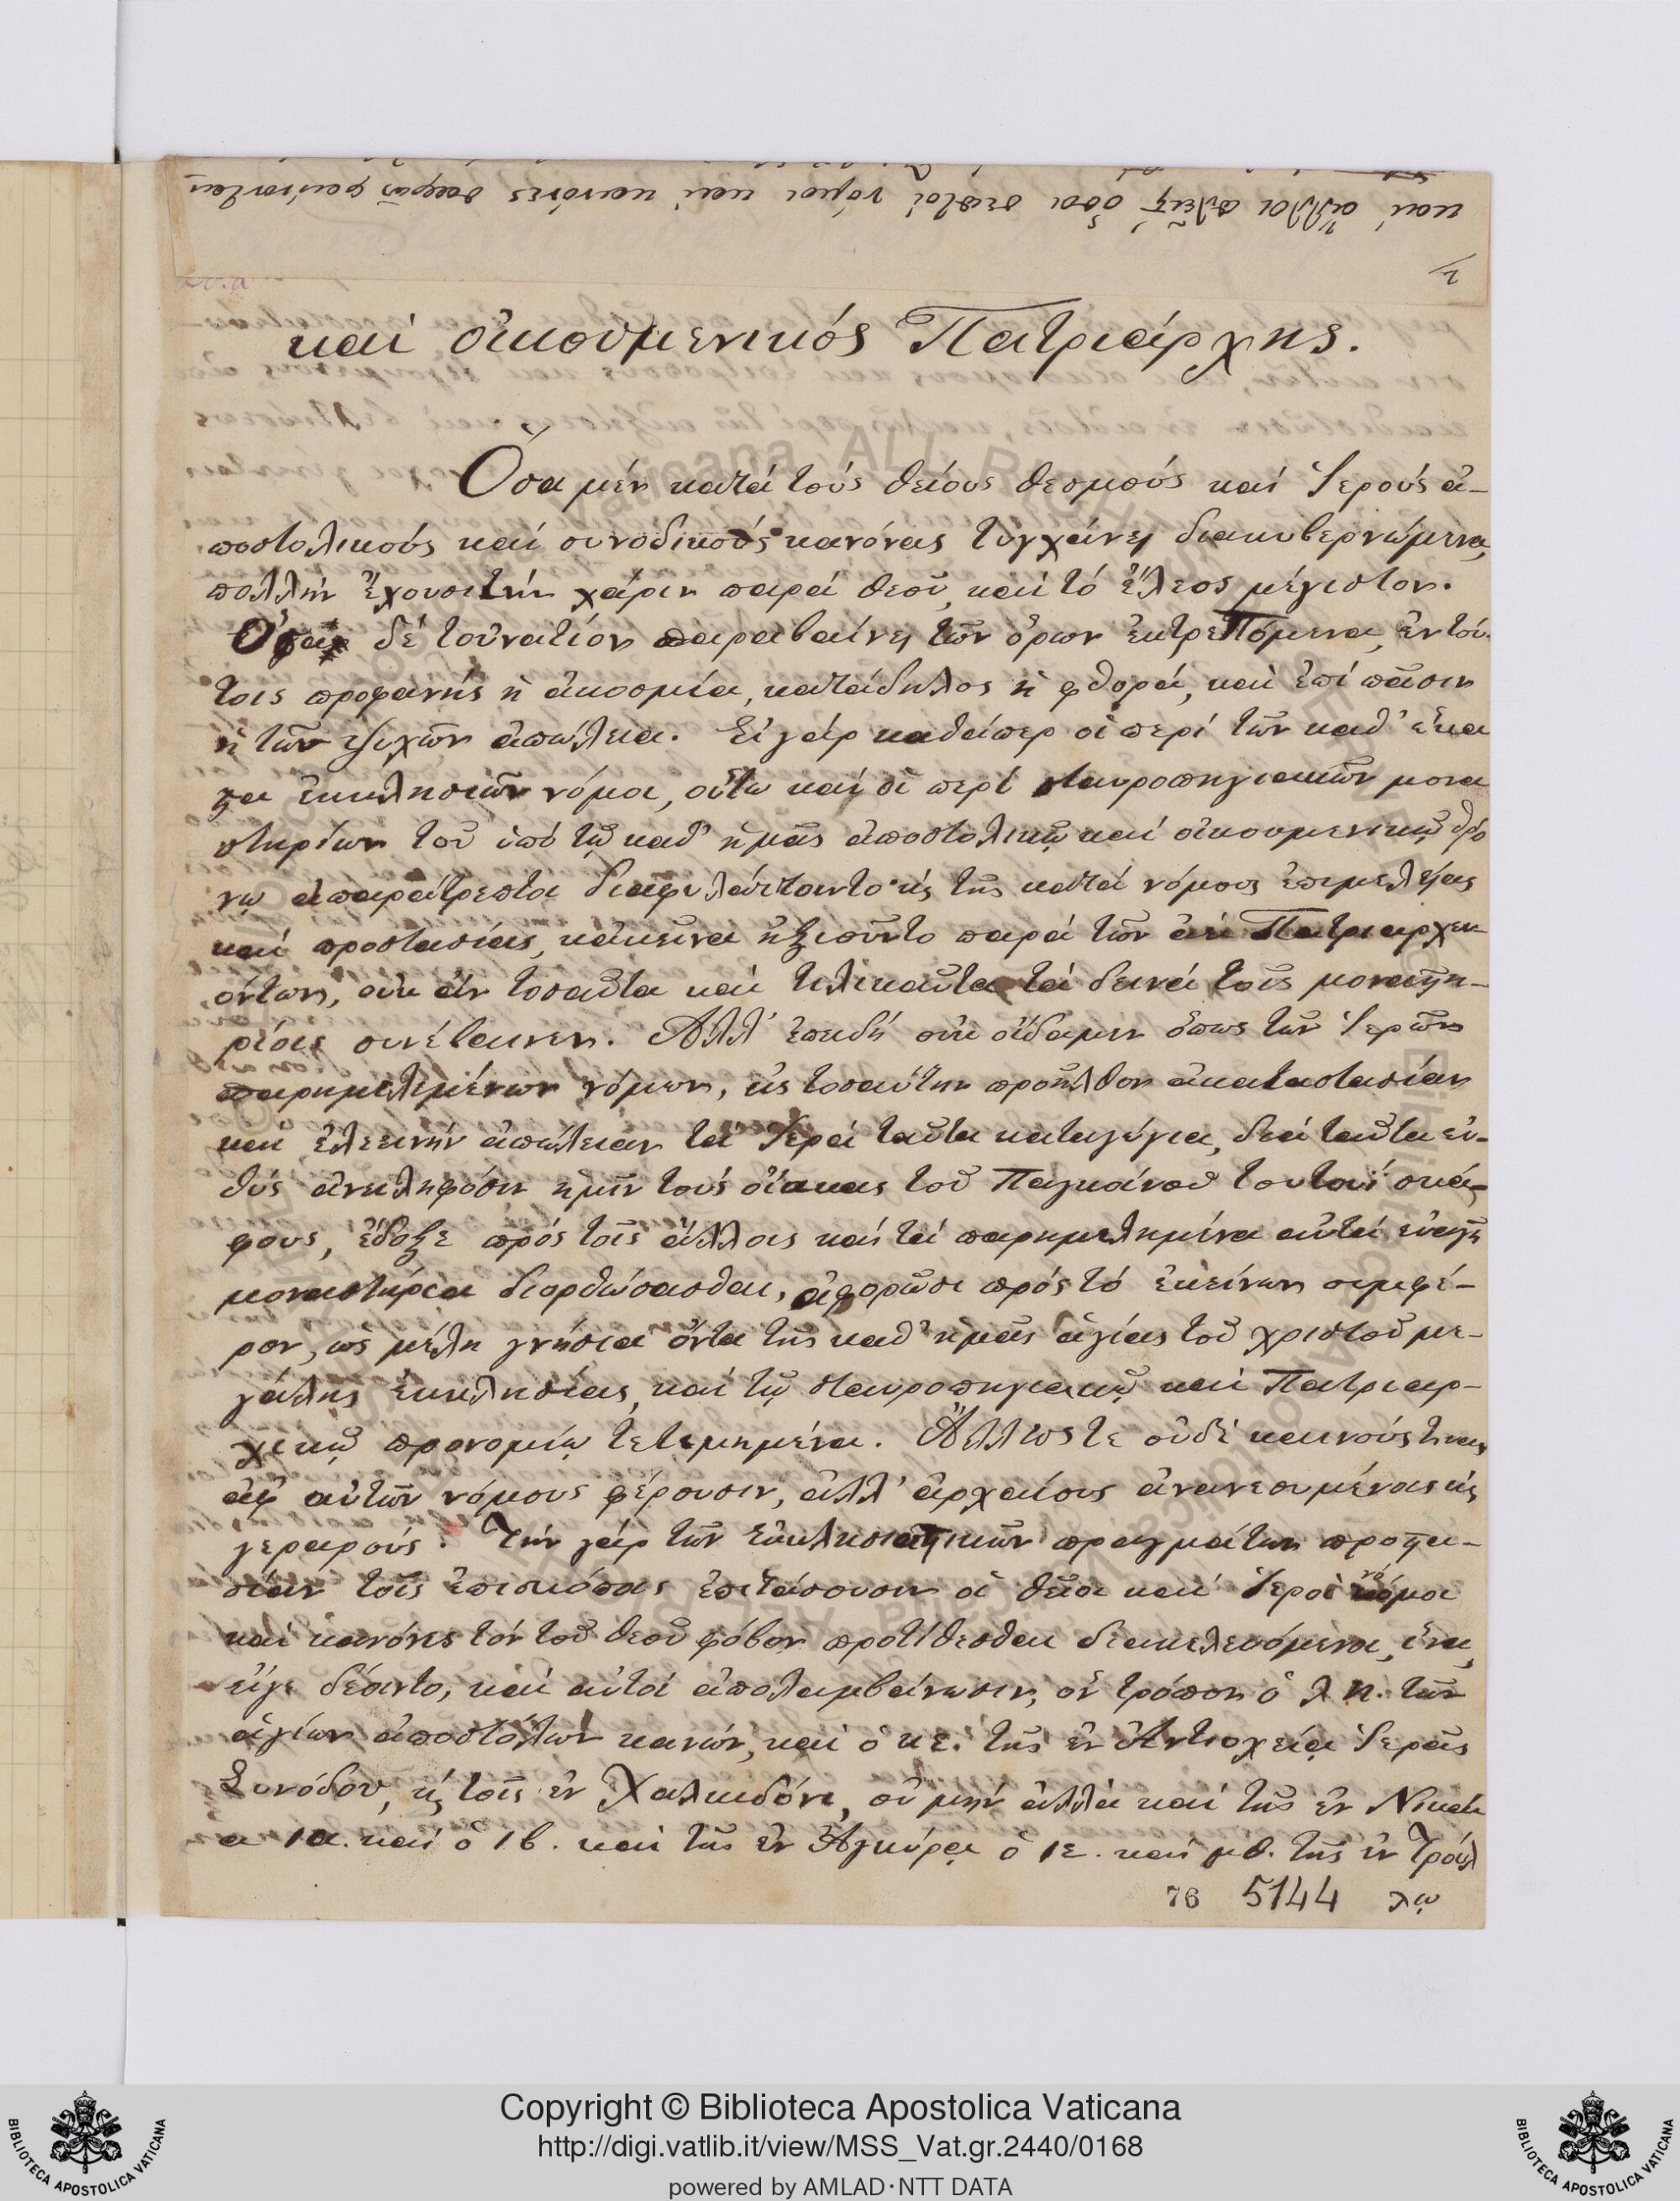 καί ἄλλοι πλεῖστ. ὅσοι θεῖοί νόμοι καί κανόνες σαφῶς φαίνονται
καί οἰκουμενικός Πατριάρχης.
Ὅσα μέν κατά τούς θείους θεσμούς καί Ἱερούς ἀ-
ποστολικούς καί συνοδικούς κανόνας τυγχάνει διακυβερνώμενα,
πολλήν ἔχουσι τήν χάριν παρά θεοῦ, καί τό ἔλεος μέγιστον.
Ὅσα δέ τοὐνατίον παραβαίνει τῶν ὅρων ἐκτρεπόμενα, ἐν τού-
τοις προφανής ἡ ἀκοσμία, κατάδηλος ἡ φθορά, καί ἐπί πᾶσιν
ἡ τῶν ψυχῶν ἀπώλεια. Εἰ γάρ καθάπερ οἱ περί τῶν καθ' ἕκα
ϛα ἐκκλησιῶν νόμοι, οὕτω καί οἱ περί σταυροπηγιακῶν μονα
στηρίων τοῦ ὑπό τῷ καθ' ἡμᾶς ἀποστολικῷ καί οἰκουμενικῷ θρό
νῳ ἀπαράτρεπτοι διαφυλάττοιντο κ̀ τῆς κατά νόμους ἐπιμελείας
καί προστασίας, κἀκεῖνα ἠξιοῦντο παρά τῶν ἀεί Πατριαρχευ-
όντων, οὐκ ἄν τοσαῦτα καί τηλικαῦτα τά δεινά τοῖς μοναϛη-
ρίοις συνέβαινεν. Ἀλλ' ἐπειδή οὐκ οἴδαμεν ὅπως τῶν Ἱερῶν
παρημελημένων νόμων, εἰς τοσαύτην προῆλθον ἀκαταστασίαν
καί ἐλεεινήν ἀπώλειαν τά Ἱερά ταῦτα καταγώγια, διά ταῦτα εὐ-
θύς ἀνειληφόσιν ἡμῖν τούς οἴακας τοῦ Παγκοίνου τουτουί σκά-
φους, ἔδοξε πρός τοῖς ἄλλοις καί τά παρημελημένα αὐτά εὐαγῆ
μοναστήρια διορθώσασθαι, ἀφορῶσι πρός τό ἐκείνων συμφέ-
ρον, ὡς μέλη γνήσια ὄντα τῆς καθ' ἡμᾶς ἁγίας τοῦ χριστοῦ με-
γάλης ἐκκλησίας, καί τῷ σταυροπηγιακῷ καί Πατριαρ-
χικῷ προνομίῳ τετιμημένα. Ἄλλωςτε οὐδέ καινούς τινας
ἀφ' αὑτῶν νόμους φέρουσιν, ἀλλ' ἀρχαίους ἀνανεουμένοις κ̀
γεραρούς. Τήν γάρ τῶν ἐκκλησιαϛικῶν πραγμάτων προϛα-
σίαν τοῖς ἐπισκόποις ἐπιτάσσουσιν οἱ θεῖοι καί Ἱεροί νόμοι
καί κανόνες τόν τοῦ θεοῦ φόβον προτίθεσθαι διακελευόμενοι, ἵνα,
εἴγε δέοιντο, καί αὐτοί ἀπολαμβάνωσιν, ὅν τρόπον ὁ λη. τῶν
ἁγίων ἀποστόλων κανών, καί ὁ κε. τῆς ἐν Ἀντιοχείᾳ Ἱερᾶς
Συνόδου, κ̀ τοῖς ἐν Χαλκιδόνι, οὐ μήν ἀλλά καί τῆς ἐν Νικαί
α ια. καί ὁ ιβ. καί τῆς ἐν Ἀγκύρᾳ ὁ ιε. καί μθ. τῆς ἐν Τρούλ
76 5144 λῳ
Copyright © Biblioteca Apostolica Vaticana
http://digi.vatlib.it/view/MSS_Vat.gr.2440/0168
powered by AMLAD·NTT DATA
BIBLIOTECA APOSTOLICA VATICANA
BIBLIOTECA APOSTOLICA VATICANA